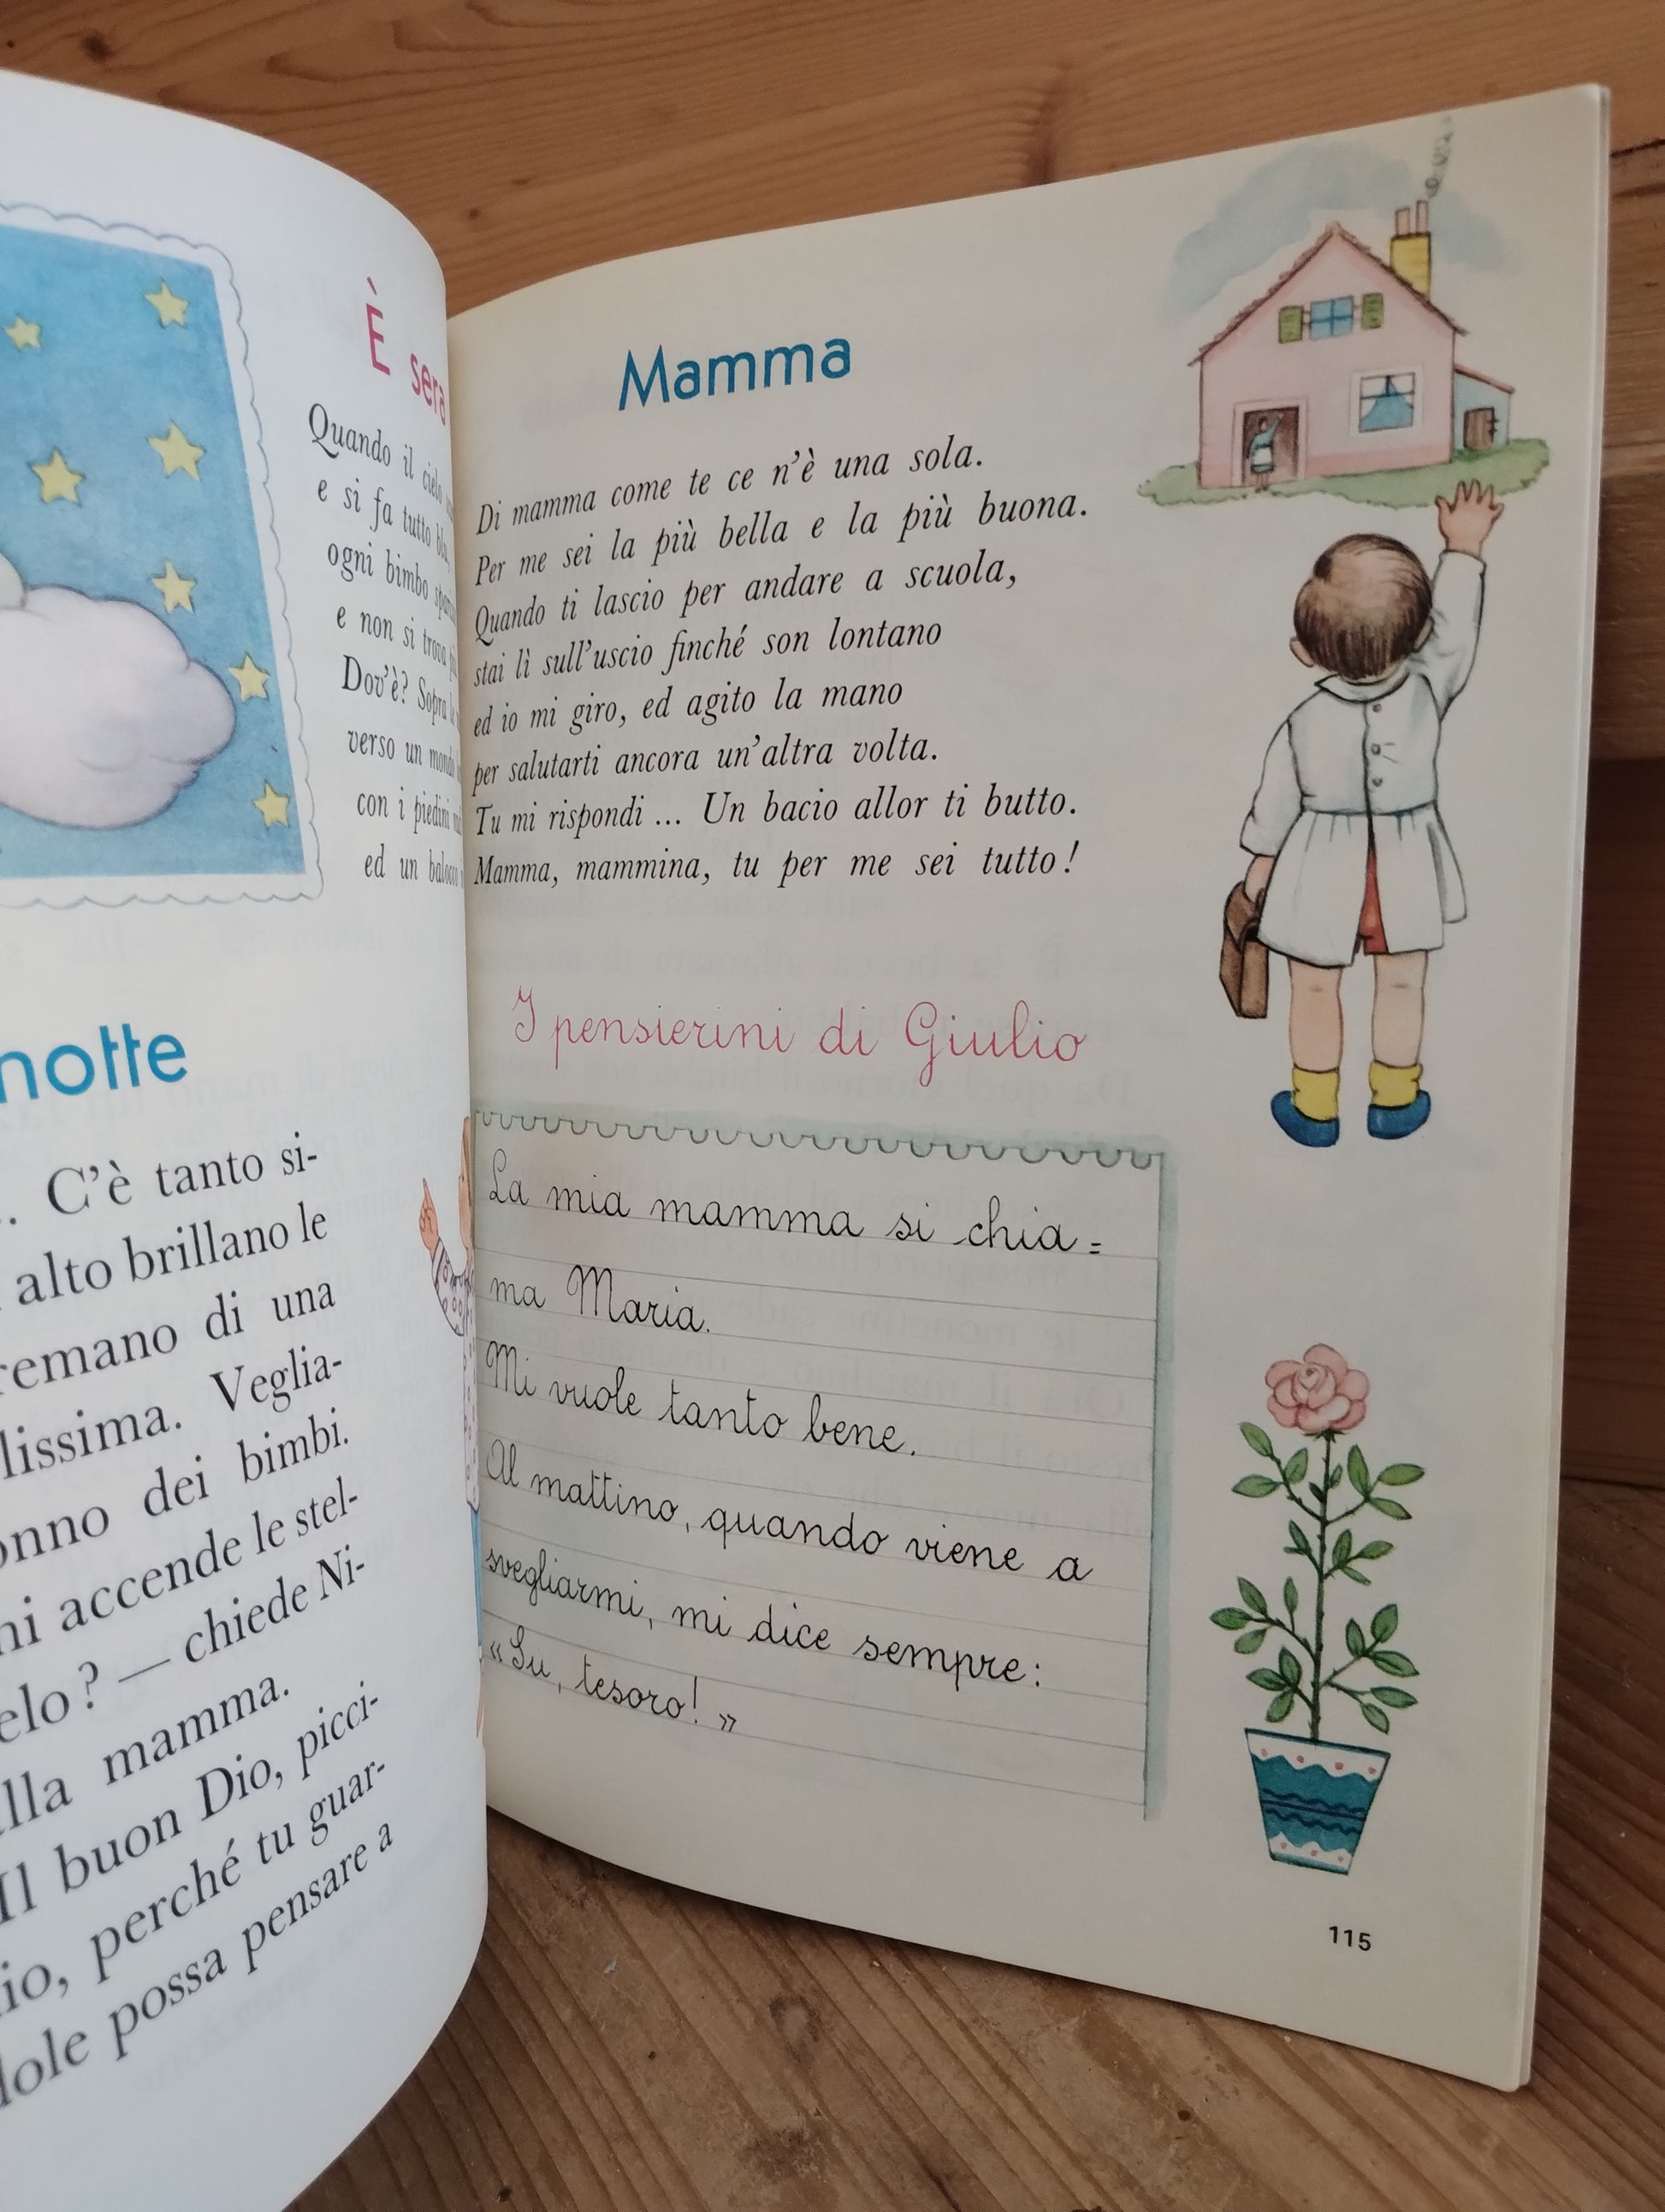 È sera
Quando il cielo
e si fa tutto blu,
ogni bimbo
e non si trova
Dov'è? Sopra
verso un mondo
con i piedini
ed un balocco
notte
C'è tanto si-
alto brillano le
di una
Veglia-
dei bimbi.
accende le stel-
? — chiede Ni-
mamma.
Il buon Dio, picci-
perché tu guar-
possa pensare a
Mamma
Di mamma come te ce n'è una sola.
Per me sei la più bella e la più buona.
Quando ti lascio per andare a scuola,
stai lì sull'uscio finché son lontano
ed io mi giro, ed agito la mano
per salutarti ancora un'altra volta.
Tu mi rispondi ... Un bacio allor ti butto.
Mamma, mammina, tu per me sei tutto!
I pensierini di Giulio
La mia mamma si chia=
ma Maria.
Mi vuole tanto bene.
Al mattino, quando viene a
svegliarmi, mi dice sempre:
«Su, tesoro!»
115